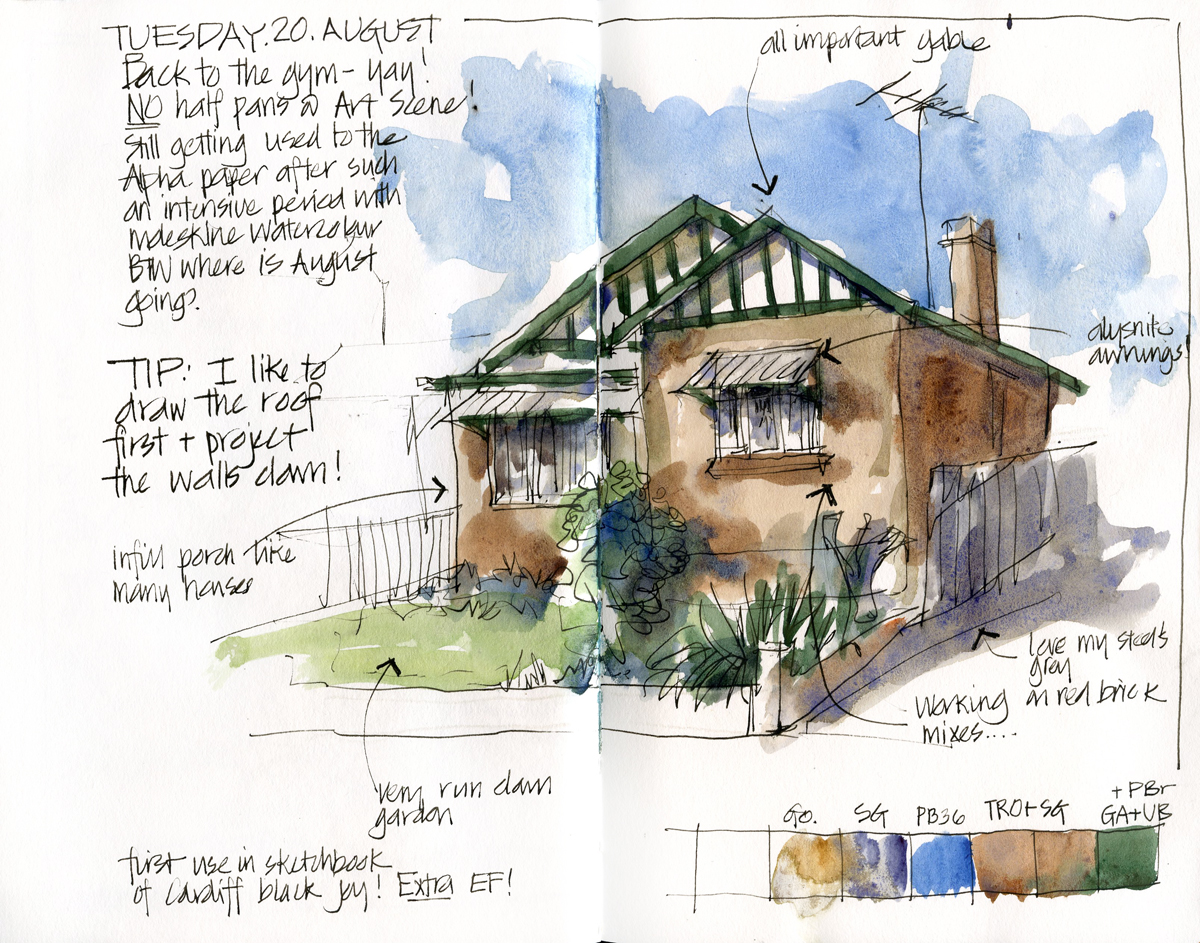 TUESDAY.20.AUGUST
Back to the gym - yay!
NO half pans @ Art Scene!
Still getting used to the
Alpha paper after such
an intensive period with
moleskine watercolour
BTW where is August
going?
TIP: I like to
draw the roof
first + project
the walls down!
infill porch like
many houses
very run down
garden
first use in sketchbook
of Cardiff black joy! Extra EF!
all important gable
alysnite
awnings!
love my steel's
grey
on red brick
Working
mixes....
GO. SG PB36 TRO+SG +PBr
GA+UB